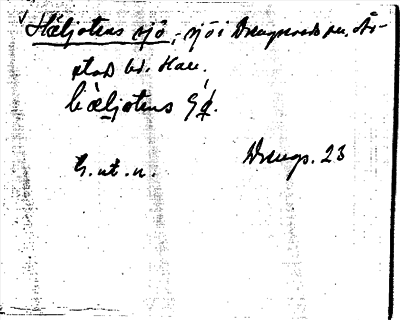 Häljotens sjö, sjö i Drengsereds sn. År-
stad hd. Hall.
hàljotens ʃǿ.
G. ut. n. Drengs. 23